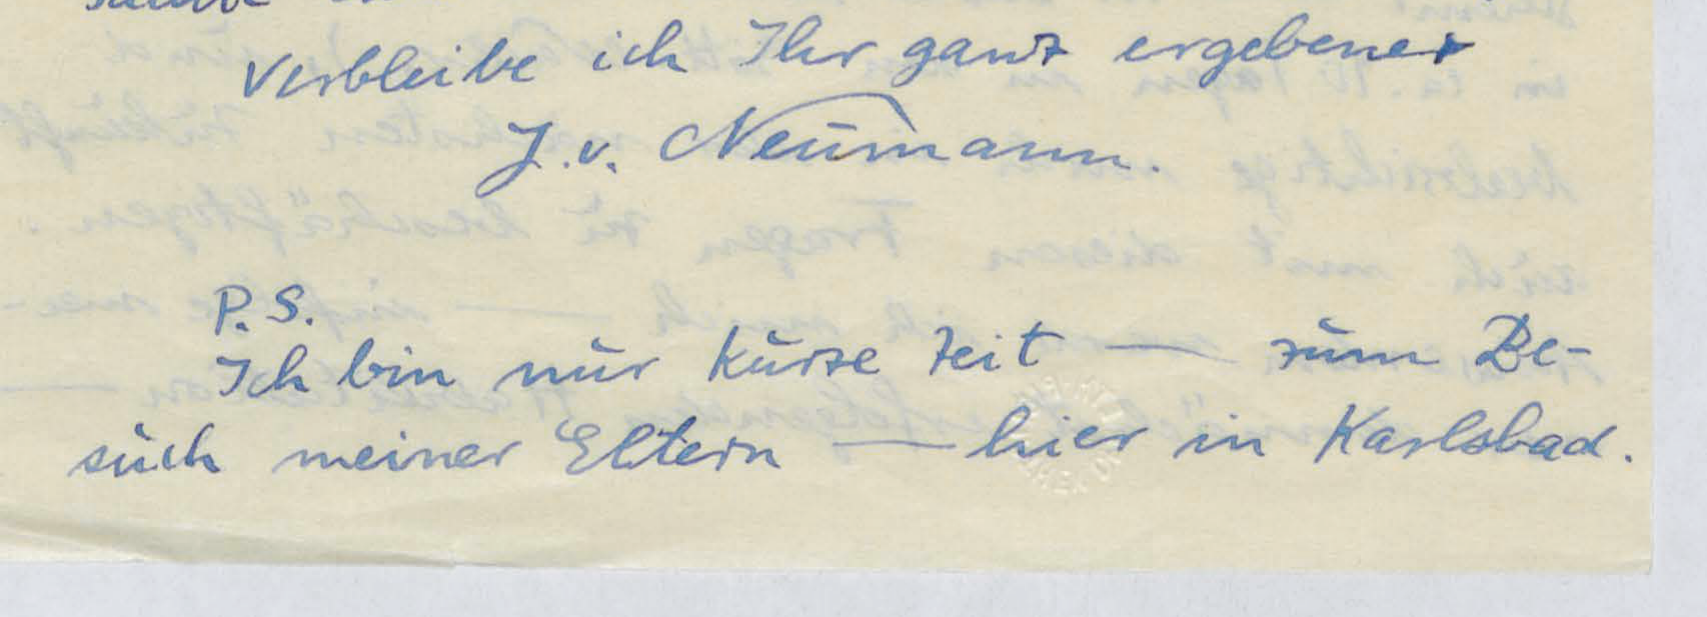 verbleibe ich Ihr ganz ergebener
J. v. Neumann.
P. S.
Ich bin nur kurze Zeit — zum Be-
such meiner Eltern — hier in Karlsbad.